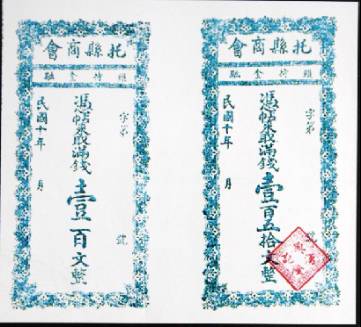 會商縣托
融金持維
字第
號
憑帖取滿錢壹百文整
民國十年 月
會商縣托
融金持維
字第
號
憑帖取滿錢壹百五拾文整
民國十年 月